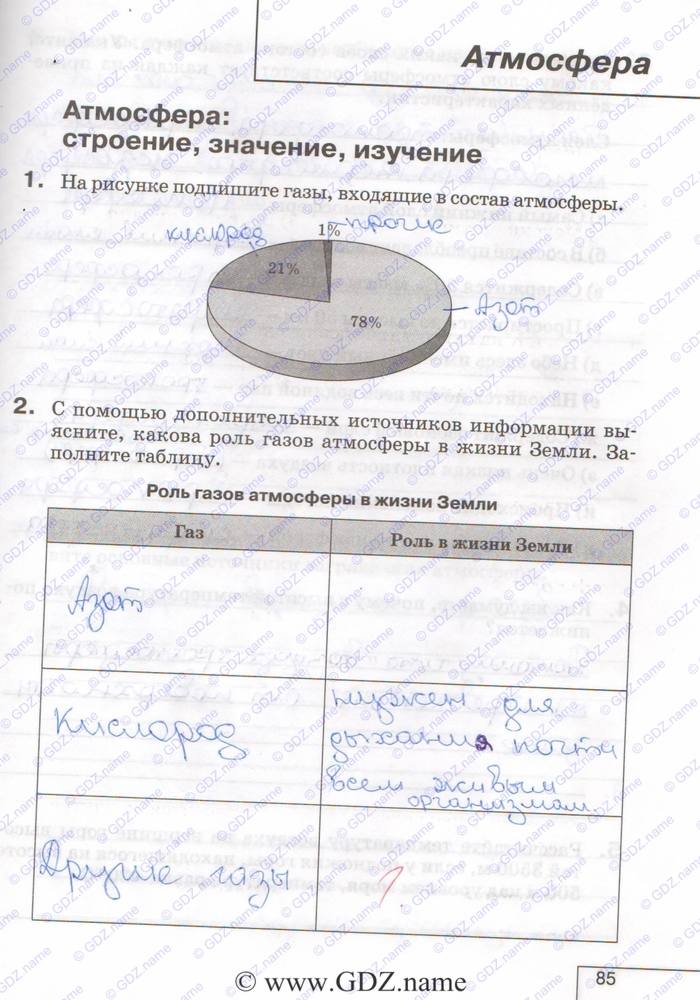 Атмосфера
Атмосфера:
строение, значение, изучение
1. На рисунке подпишите газы, входящие в состав атмосферы.
кислород 1% прочие
21%
Азот
78%
2. С помощью дополнительных источников информации вы-
ясните, какова роль газов атмосферы в жизни Земли. За-
полните таблицу.
Роль газов атмосферы в жизни Земли
Газ Роль в жизни Земли
Азот
Кислород
нужен для
дыхания почти
всем живым
организмам.
Другие газы
?
85
© www.GDZ.name